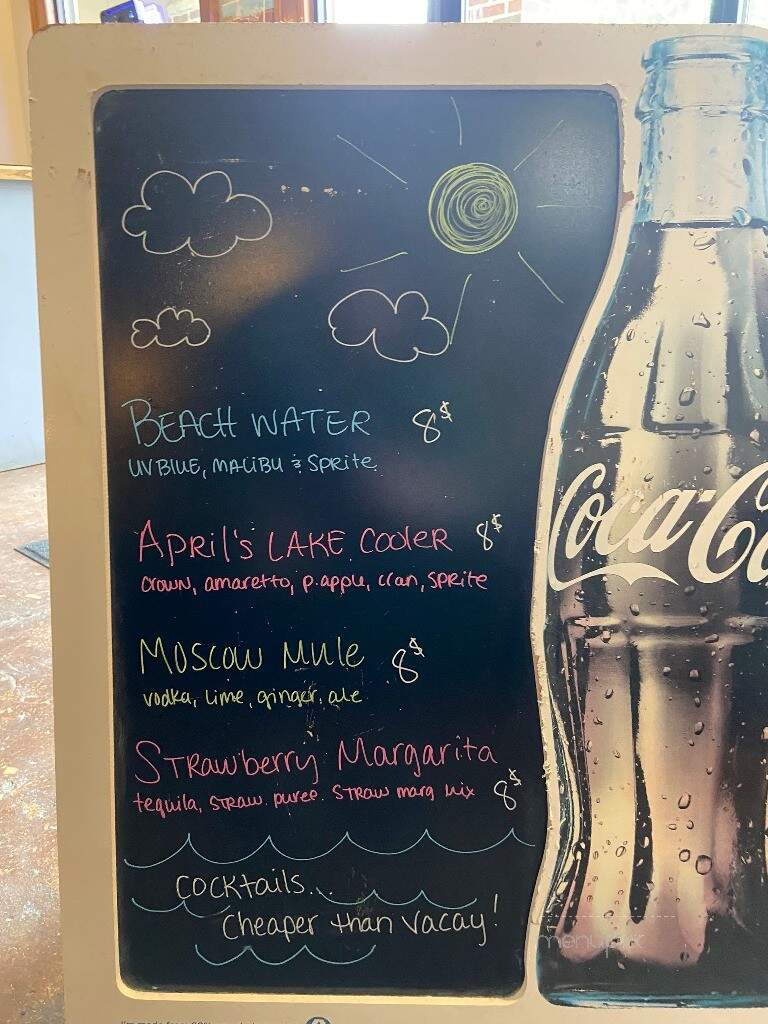 BEACH WATER 8$
UV BLUE, MALIBU & Sprite
April's LAKE Cooler 8$
crown, amaretto, p.apple, cran, sprite
Moscow Mule 8$
vodka, lime, ginger ale
Strawberry Margarita
tequila, straw. puree. straw marg mix 8$
cocktails...
cheaper than vacay!
Coca-Co
menupix